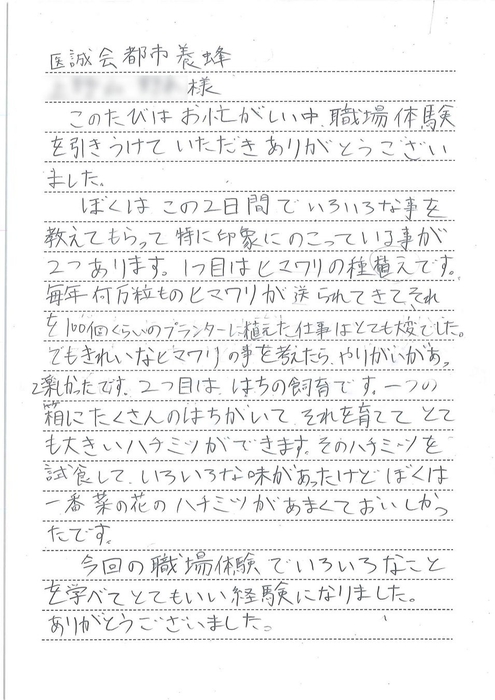 医誠会都市養蜂
様
このたびはお忙がしい中、職場体験
を引きうけていただきありがとうござい
ました。
ぼくはこの2日間でいろいろな事を
教えてもらって特に印象にのこっている事が
2つあります。1つ目はヒマワリの種植えです。
毎年何万粒ものヒマワリが送られてきてそれ
を100個くらいのプランターに植えた仕事はとても大変でした。
でもきれいなヒマワリの事を考えたら、やりがいがあっ
て楽しかったです。2つ目は、はちの飼育です。一つの
箱にたくさんのはちがいて、それを育ててとて
も大きいハチミツができます。そのハチミーツを
試食して、いろいろな味があったけどぼくは
一番菜の花のハチミツがあまくておいしかっ
たです。
今回の職場体験でいろいろなこと
を学べてとてもいい経験になりました。
ありがとうございました。